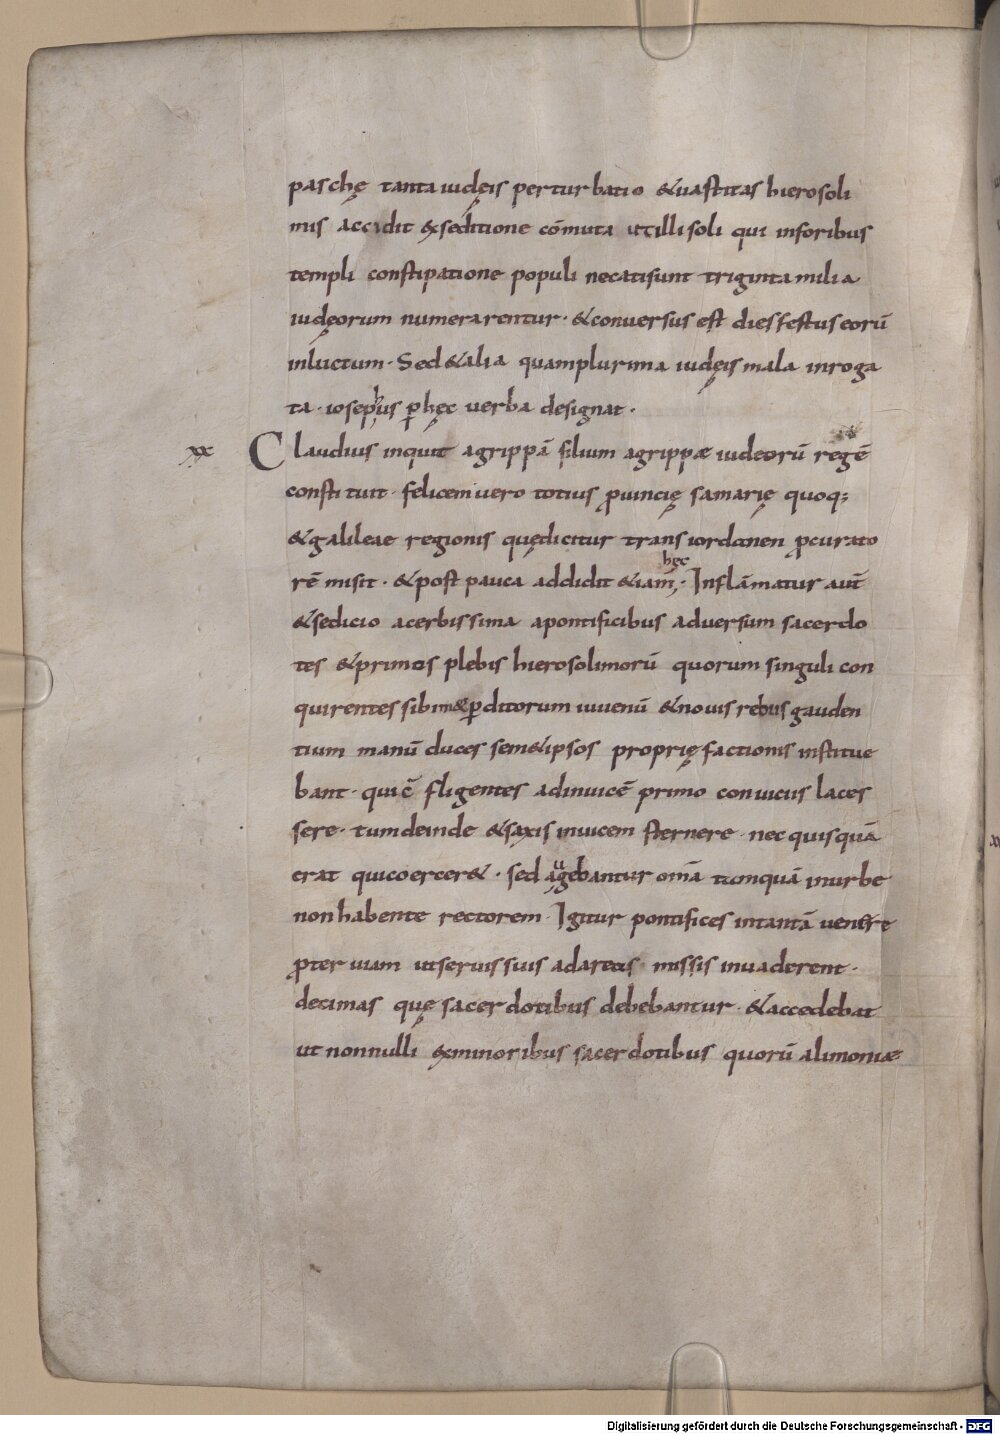 paschę tanta iudęis perturbatio &uastitas hierosoli
mis accidit exseditione cōmuta utilli soli qui inforibus
templi constipatione populi necatisunt triginta milia
iudęorum numerarentur · &conuersus est dies festus eorū
inluctum · Sed &alia quamplurima iudęis mala inroga
ta · iosephus ꝑhęc uerba designat ·
xx Claudius inquit agrippā filium agrippæ iudeorū regē
constituit · felicem uero totius ꝓuincię samarię quoq;
&galileae regionis quędicitur trans iordanen ꝓcurato
rē misit · &post pauca addidit &iam hęc · Inflāmatur aut̄
&sedicio acerbissima apontificibus aduersum sacerdo
tes &primos plebis hierosolimorū quorum singuli con
quirentes sibim& ꝑditorum iuuenū &nouis rebus gauden
tium manū duces sem&ipsos proprię factionis institue
bant · qui c̄fligentes adinuicē primo conuicus laces
sere · tumdeinde &saxis inuicem sternere · nec quisquā
erat quicoercer& · sed augebantur omā tamquā inurbe
nonhabente rectorem · Igitur pontifices intantā uenere
ꝓteruiam utseruis suis adareas missis inuaderent ·
decimas quę sacerdotibus debebantur · &accedebat
ut nonnulli exminoribus sacerdotibus quorū alimoniæ
Digitalisierung gefördert durch die Deutsche Forschungsgemeinschaft - DFG